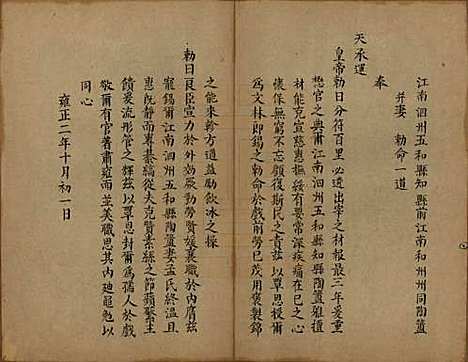 江南泗州五和縣知縣前江南和州州同陶蓋
并妻 勅命一道
奉
天承運
皇帝勅曰分符百里必遴出宰之材報最三年爰重
懋官之典爾江南泗州五和縣知縣陶蓋雅擅
材能克宣慈惠撫綏有要常深疾痛在已之心
催保無窮不忘顧復斯民之責茲以覃恩授爾
為文林郎錫之勅命於戲前勞已茂用褒製錦
之能來軫方遒益勵飲冰之操
勅曰良臣宣力於外効厥勤勞賢媛襄職於內膺茲
寵錫爾江南泗州五和縣陶蓋妻孟氏終溫且
惠既靜而專綦縞從夫克贊素絲之節蘋蘩主
饋爰流彤管之輝茲以覃恩封爾為孺人於戲
敬爾有官著肅雍而並美職思其內迪黽勉以
同心
雍正二年十月初一日